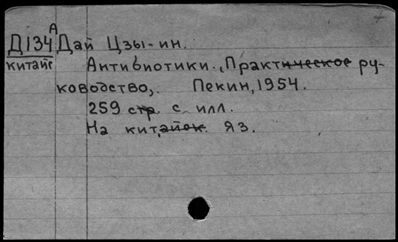 Д134А Дай Цзы-ин.
китайс Антибиотики., Практическое ру-
ководство,. Пекин, 1954.
259 стр. с илл.
На китайск. яз.